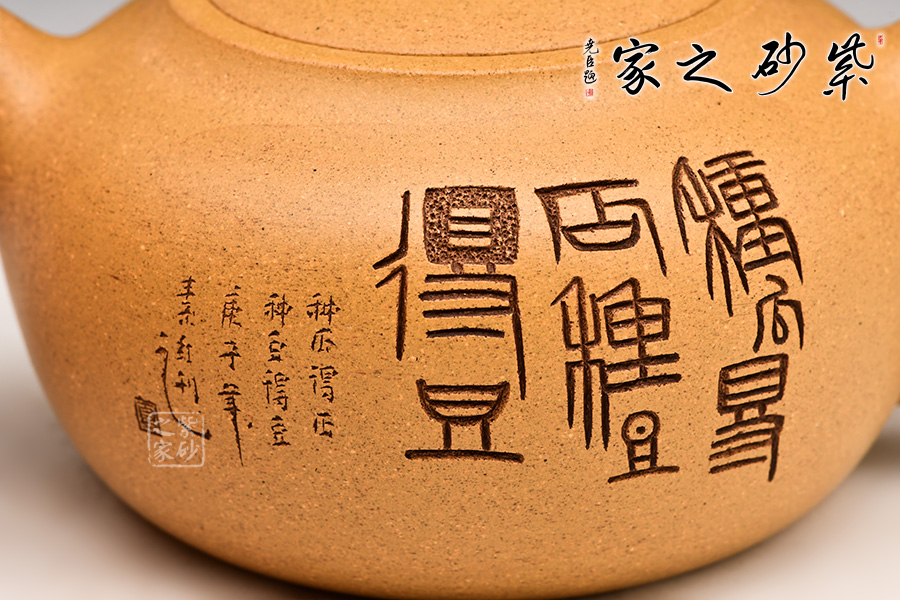 紫砂之家
尧臣题
種瓜得
瓜種豆
得豆
种瓜得瓜
种豆得豆
庚子年
紫砂之家